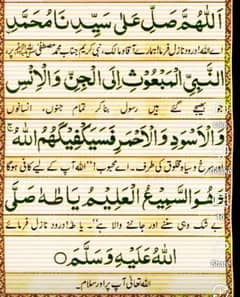 اَللّٰهُمَّ صَلِّ عَلٰى سَيِّدِنَا مُحَمَّدِ
اے اللہ! درود نازل فرما ہمارے آقا و مالک، نبی کریم جناب محمد مصطفیٰ ﷺ پر
النَّبِيِّ الْمَبْعُوْثِ اِلَى الْجِنِّ وَالْاِنْسِ
جو بھیجے گئے ہیں رسول بنا کر تمام جنوں، انسانوں
وَالْاَسْوَدِ وَالْاَحْمَرِ فَسَيَكْفِيْكَهُمُ اللّٰهُ
اور سرخ و سیاہ مخلوق کی طرف۔ اے محبوب! اللہ آپ کے لیے کافی ہوگا
وَهُوَ السَّمِيْعُ الْعَلِيْمُ يَا طٰهٰ صَلَّى
بے شک وہی سننے اور جاننے والا ہے۔ یا طٰہٰ! درود نازل فرمائے
اللّٰهُ عَلَيْهِ وَسَلَّمَ
اللہ تعالیٰ آپ پر اور سلام۔